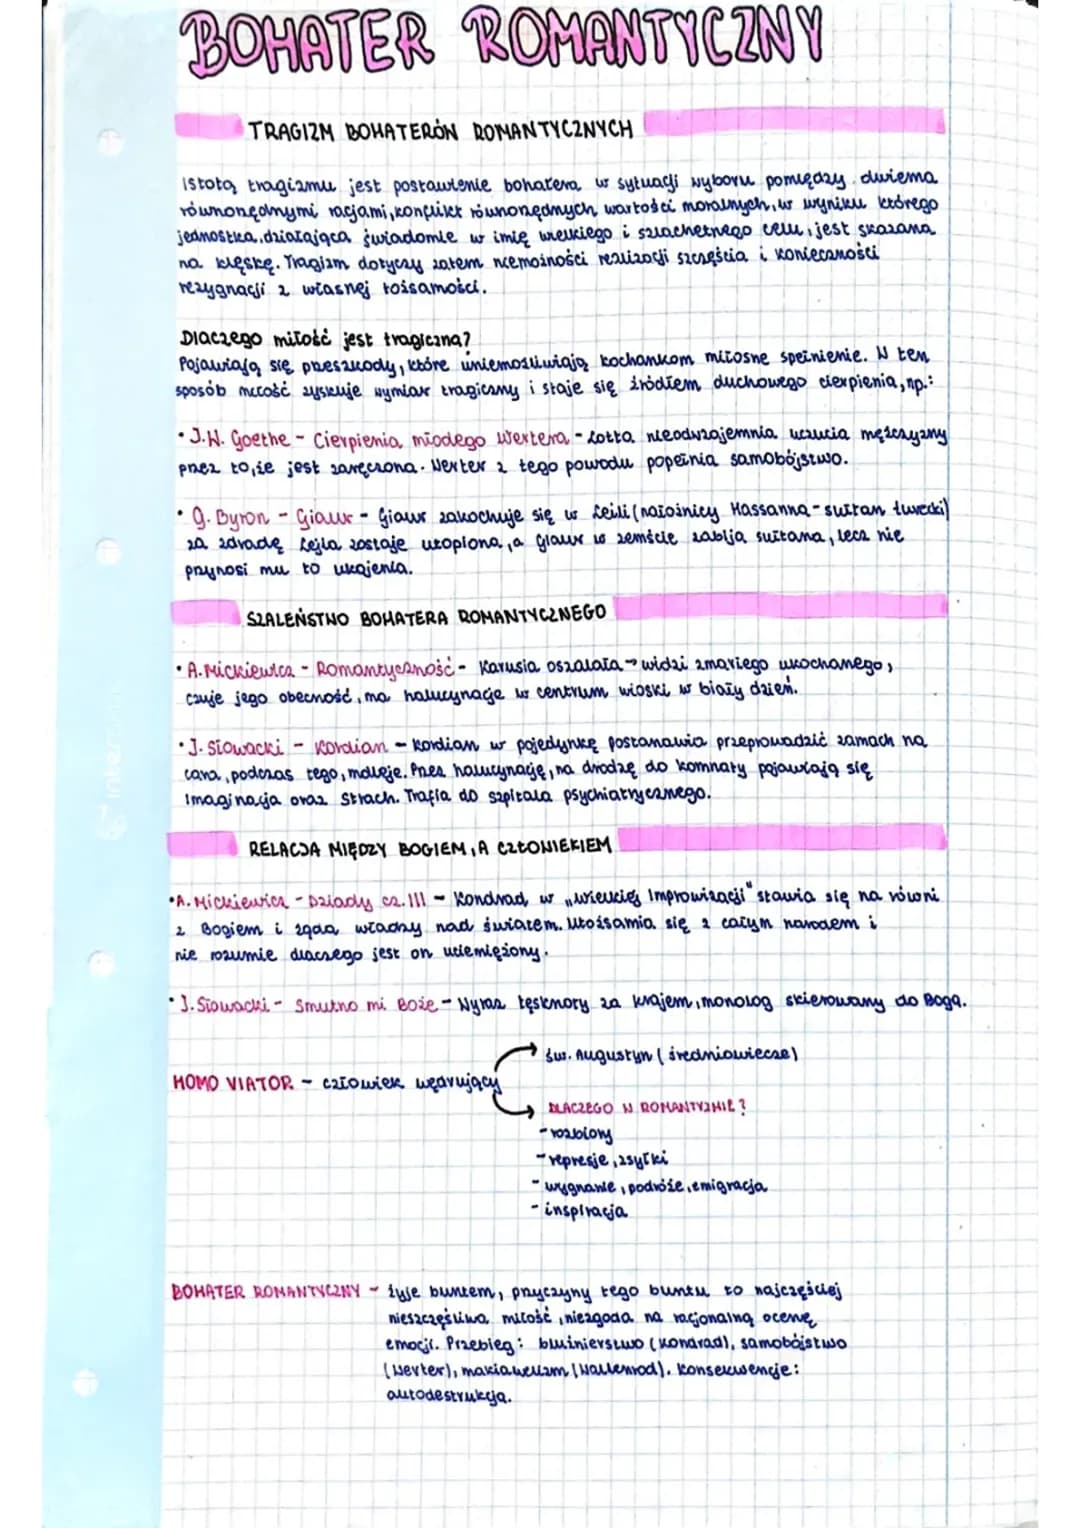 BOHATER ROMANTYCZNY
TRAGIZM BOHATERÓW ROMANTYCZNYCH
Istotą tragizmu jest postawienie bohatera w sytuacji wyboru pomiędzy dwiema
równorzędnymi racjami, konflikt równorzędnych wartości moralnych, w wyniku którego
jednostka, działająca świadomie w imię wielkiego i szlachetnego celu, jest skazana
na klęskę. Tragizm dotyczy zatem niemożności realizacji szczęścia i konieczności
rezygnacji z własnej tożsamości.
Dlaczego miłość jest tragiczna?
Pojawiają się przeszkody, które uniemożliwiają kochankom miłosne spełnienie. W ten
sposób miłość zyskuje wymiar tragiczny i staje się źródłem duchowego cierpienia, np.:
• J.W. Goethe - Cierpienia młodego Wertera - Lotta nieodwzajemnia uczucia mężczyzny
przez to, że jest zaręczona. Werter z tego powodu popełnia samobójstwo.
• G. Byron - Giaur - Giaur zakochuje się w Leili (nałożnicy Hassanna - sułtan turecki)
za zdradę Lejla zostaje utopiona, a Giaur w zemście zabija sułtana, lecz nie
przynosi mu to ukojenia.
SZALEŃSTWO BOHATERA ROMANTYCZNEGO
• A. Mickiewicz - Romantyczność - Karusia oszalała → widzi zmarłego ukochanego,
czuje jego obecność, ma halucynacje w centrum wioski w biały dzień.
• J. Słowacki - Kordian - Kordian w pojedynkę postanawia przeprowadzić zamach na
cara, podczas tego, mdleje. Przez halucynację, na drodzę do komnaty pojawiają się
Imaginacja oraz Strach. Trafia do szpitala psychiatrycznego.
RELACJA MIĘDZY BOGIEM, A CZŁOWIEKIEM
• A. Mickiewicz - Dziady cz. III - Kondrad, w „Wielkiej Improwizacji" stawia się na równi
z Bogiem i żąda władzy nad światem. Utożsamia się z całym narodem i
nie rozumie dlaczego jest on uciemiężony.
• J. Słowacki - Smutno mi Boże - Wyraz tęsknoty za krajem, monolog skierowany do Boga.
św. Augustyn (średniowiecze)
HOMO VIATOR - człowiek wędrujący
DLACZEGO W ROMANTYZMIE?
- rozbiory
- represje, zsyłki
- wygnanie, podróże, emigracja
- inspiracja
BOHATER ROMANTYCZNY - żyje buntem, przyczyny tego buntu to najczęściej
nieszczęśliwa miłość, niezgoda na racjonalną ocenę
emocji. Przebieg: bluźnierstwo (Kondrad), samobójstwo
(Werter), makiawelizm (Wallenrod). Konsekwencje:
autodestrukcja.